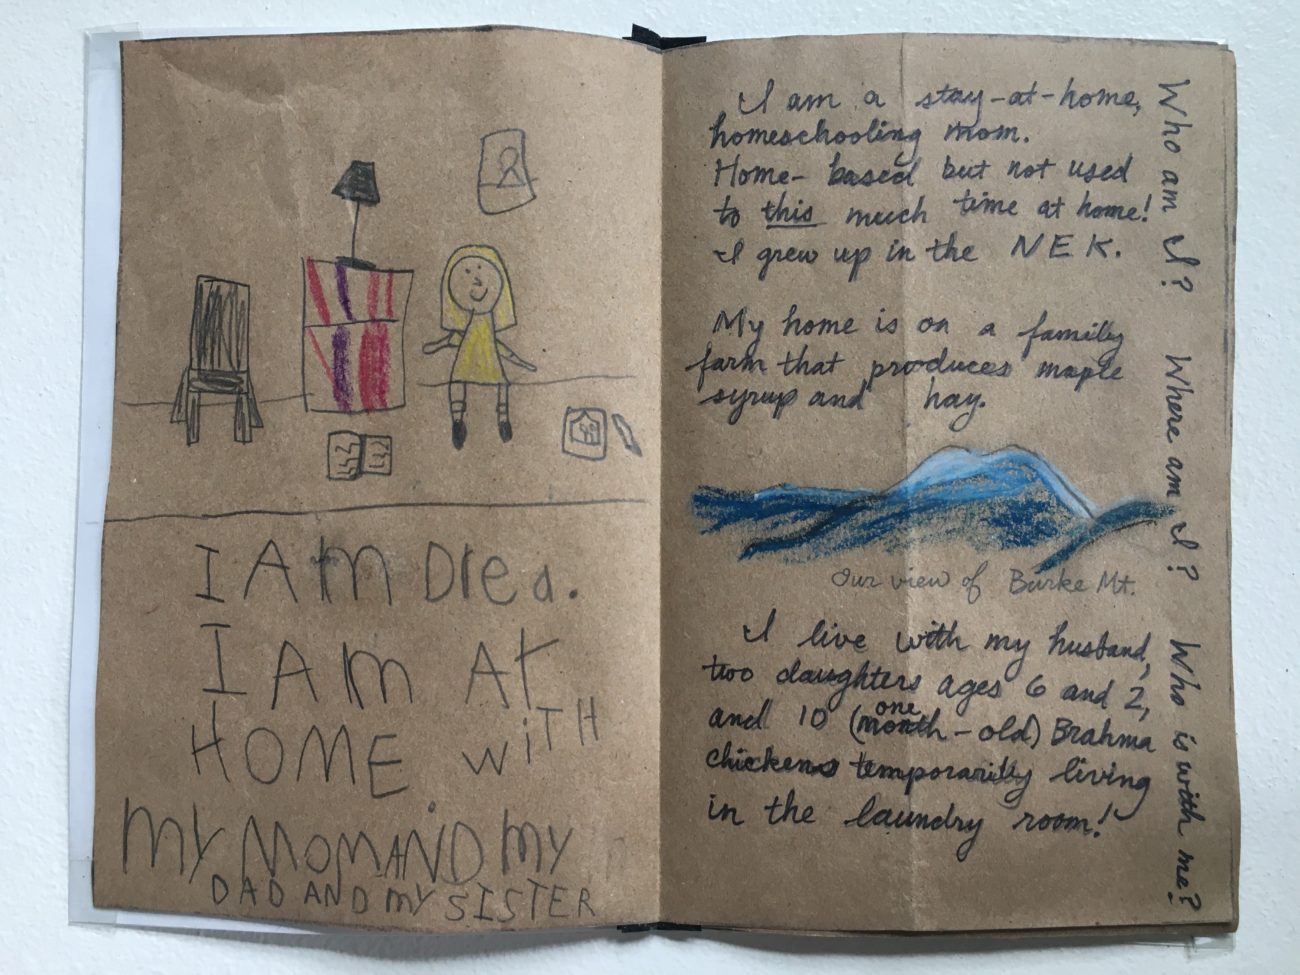 I AM Drea.
I AM At
HOME. WiTH
my MOM AND my
DAD AND my SISTER
I am a stay-at-home,
homeschooling mom.
Home-based but not used
to this much time at home!
I grew up in the NEK.
My home is on a family
farm that produces maple
syrup and hay.
Our view of Burke Mt.
I live with my husband,
two daughters ages 6 and 2,
and 10 (one month-old) Brahma
chickens temporarily living
in the laundry room!
Who am I? Where am I? Who is with me?